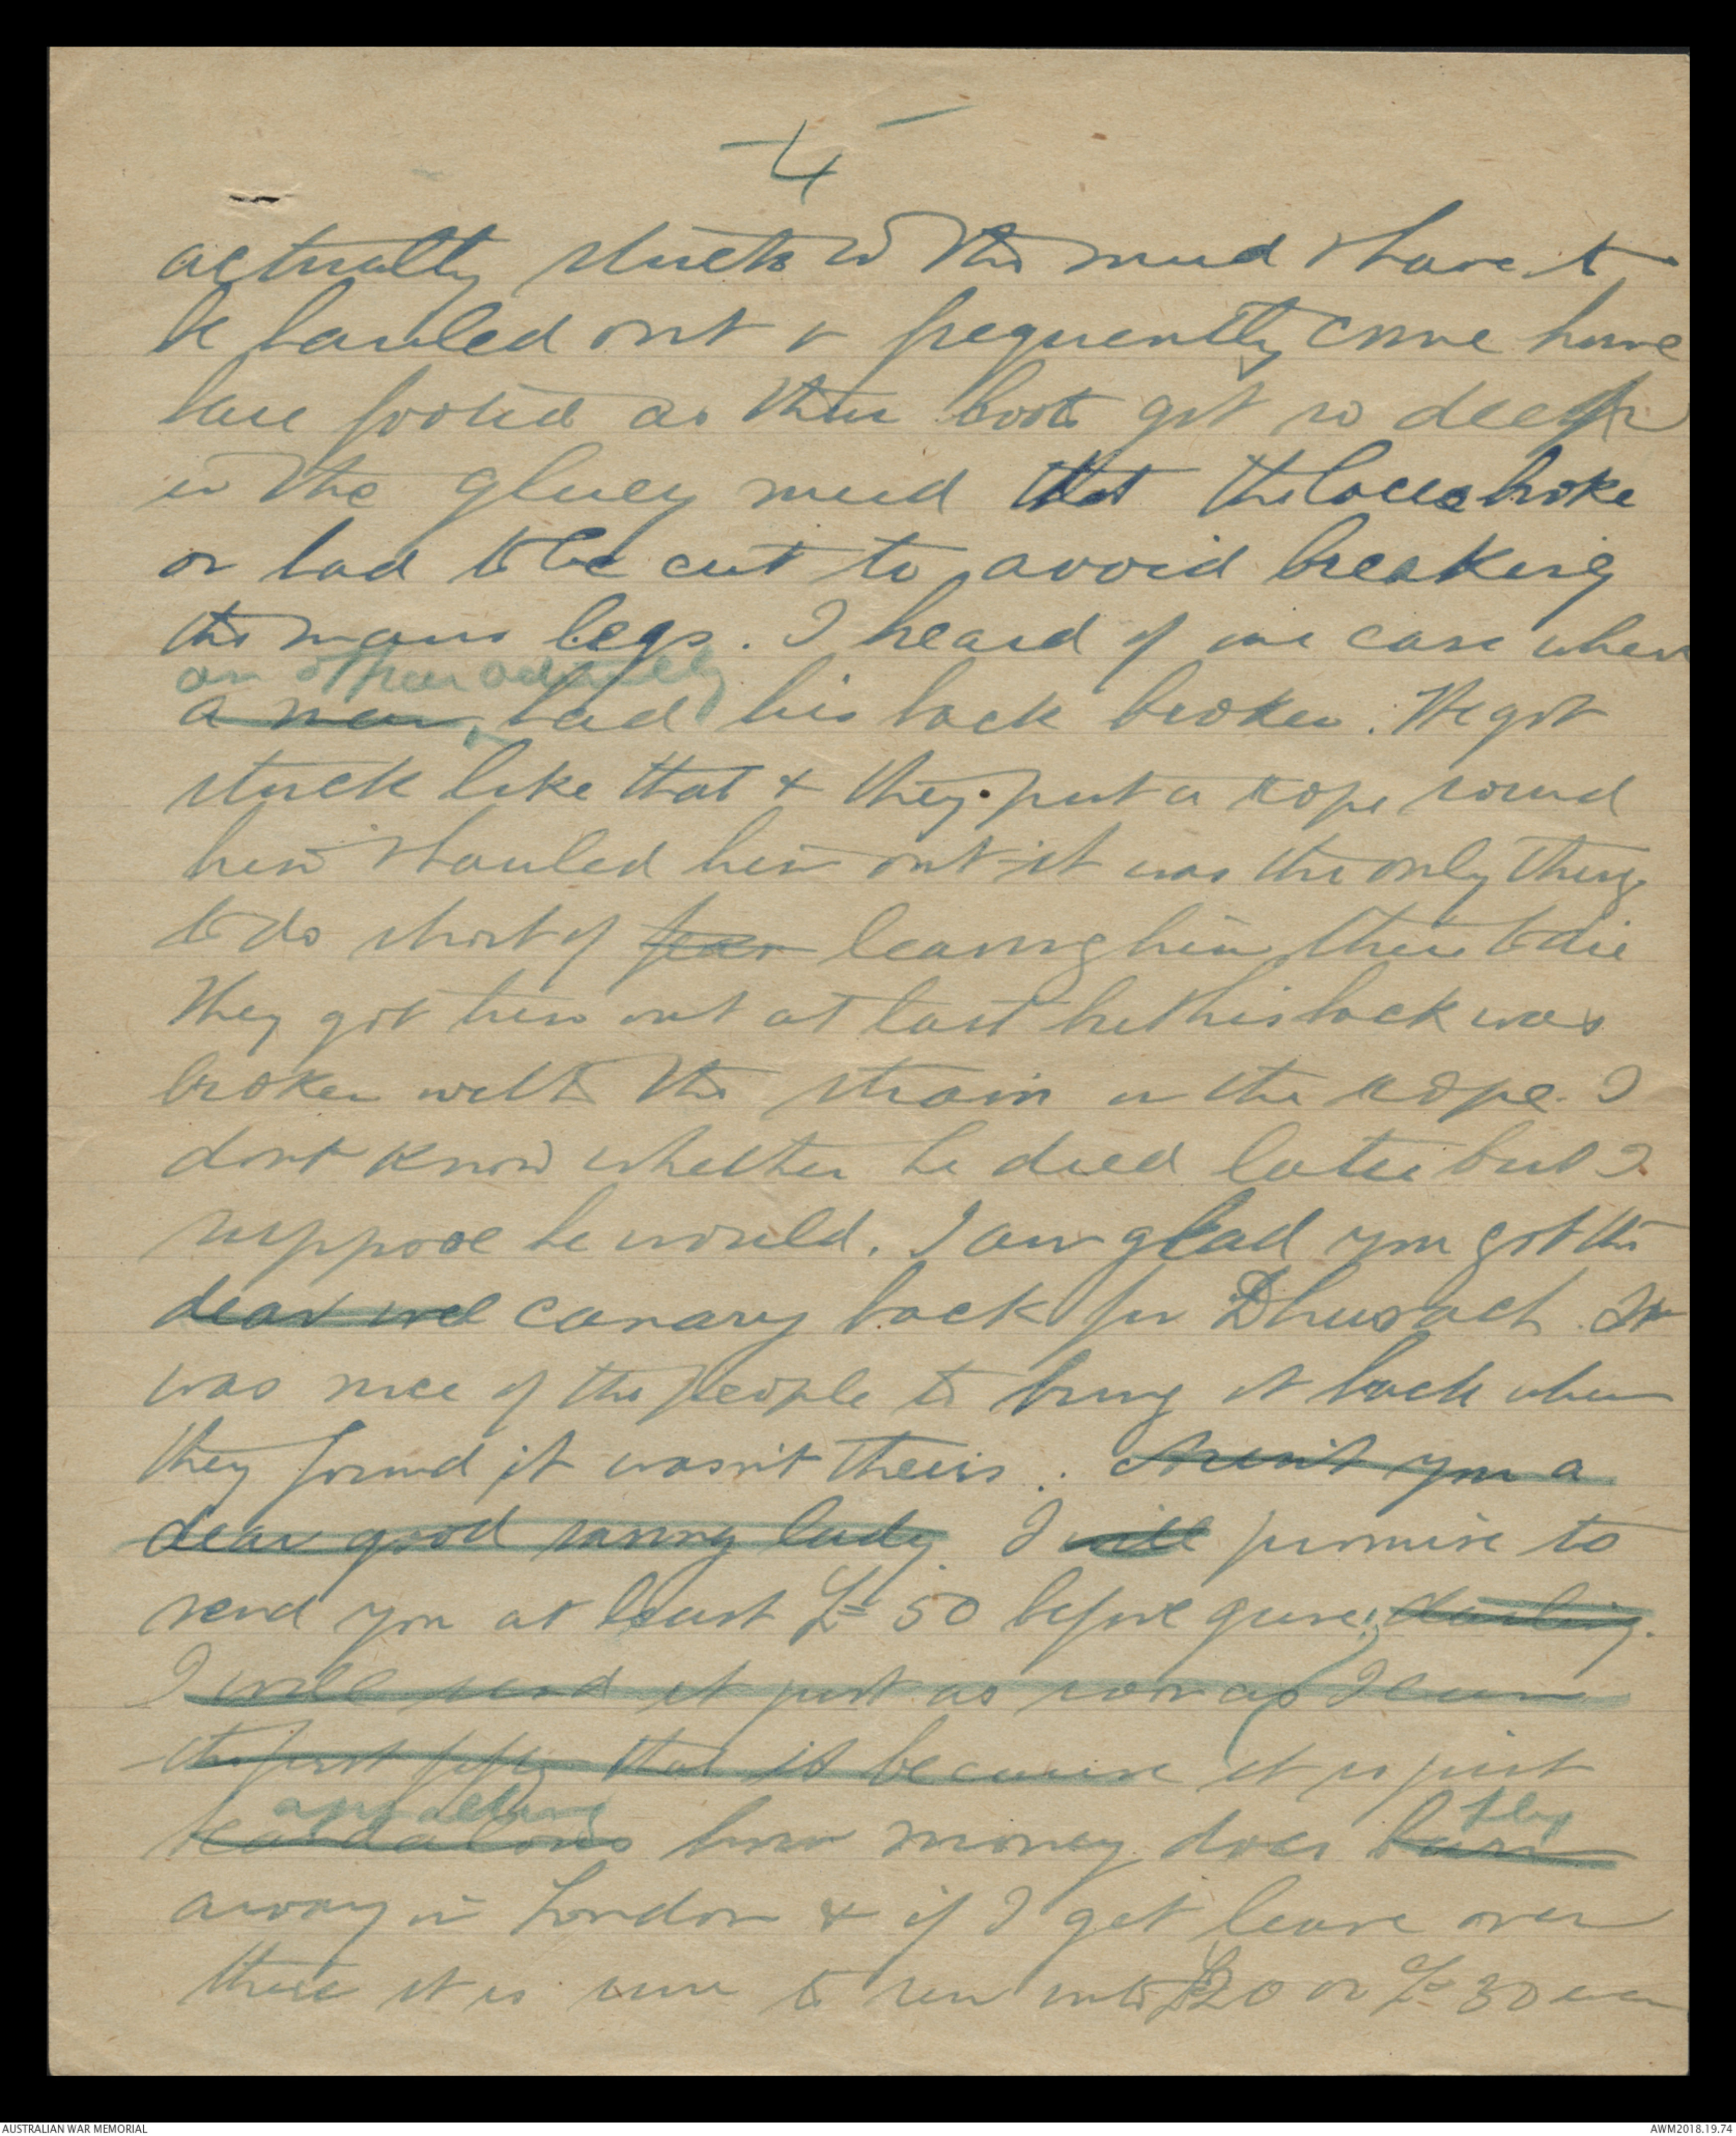 4
actually stuck in the mud & have to
be hauled out & frequently come home
bare footed as their boots got so deep
in the gluey mud that the laces broke
or had to be cut to avoid breaking
the mans legs. I heard of one case when
an officer actually
a man, had his back broken. He got
stuck like that & they put a rope round
him & hauled him out it was the only thing
to do short of leaving him there to die
They got him out at last but his back was
broken with the strain on the rope. I
dont know whether he died later but I
suppose he would. I am glad you got the
dear wee canary back for Dhusach. It
was nice of the people to bring it back when
they found it wasn't theirs. Aren't you a
dear good saving lady. I will promise to
send you at least £50 before June, darling.
I will send it just as soon as I can
the first fifty that is because it is just
appalling fly
scandalous how money does burn
away in London & if I get leave over
there it is sure to run into £20 or £30 even
AUSTRALIAN WAR MEMORIAL
AWM2018.19.74